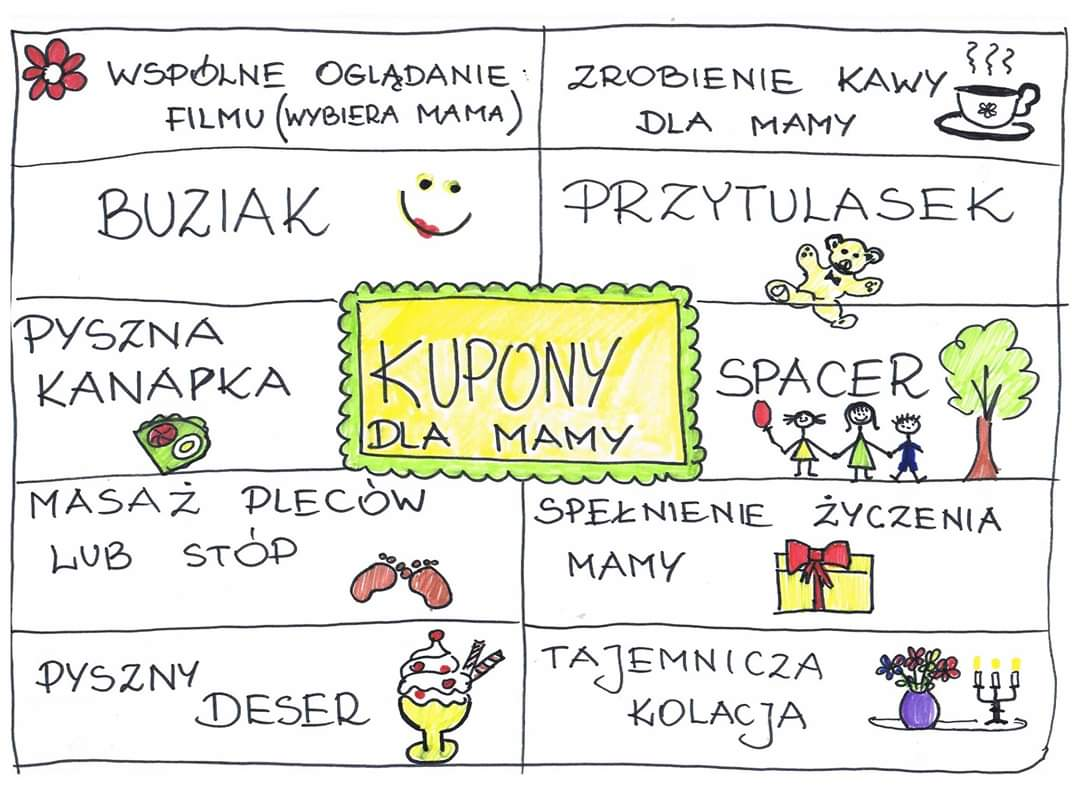 WSPÓLNE OGLĄDANIE
FILMU (WYBIERA MAMA)
ZROBIENIE KAWY
DLA MAMY
BUZIAK
PRZYTULASEK
PYSZNA
KANAPKA
KUPONY
DLA MAMY
SPACER
MASAŻ PLECÓW
LUB STÓP
SPEŁNIENIE ŻYCZENIA
MAMY
PYSZNY
DESER
TAJEMNICZA
KOLACJA